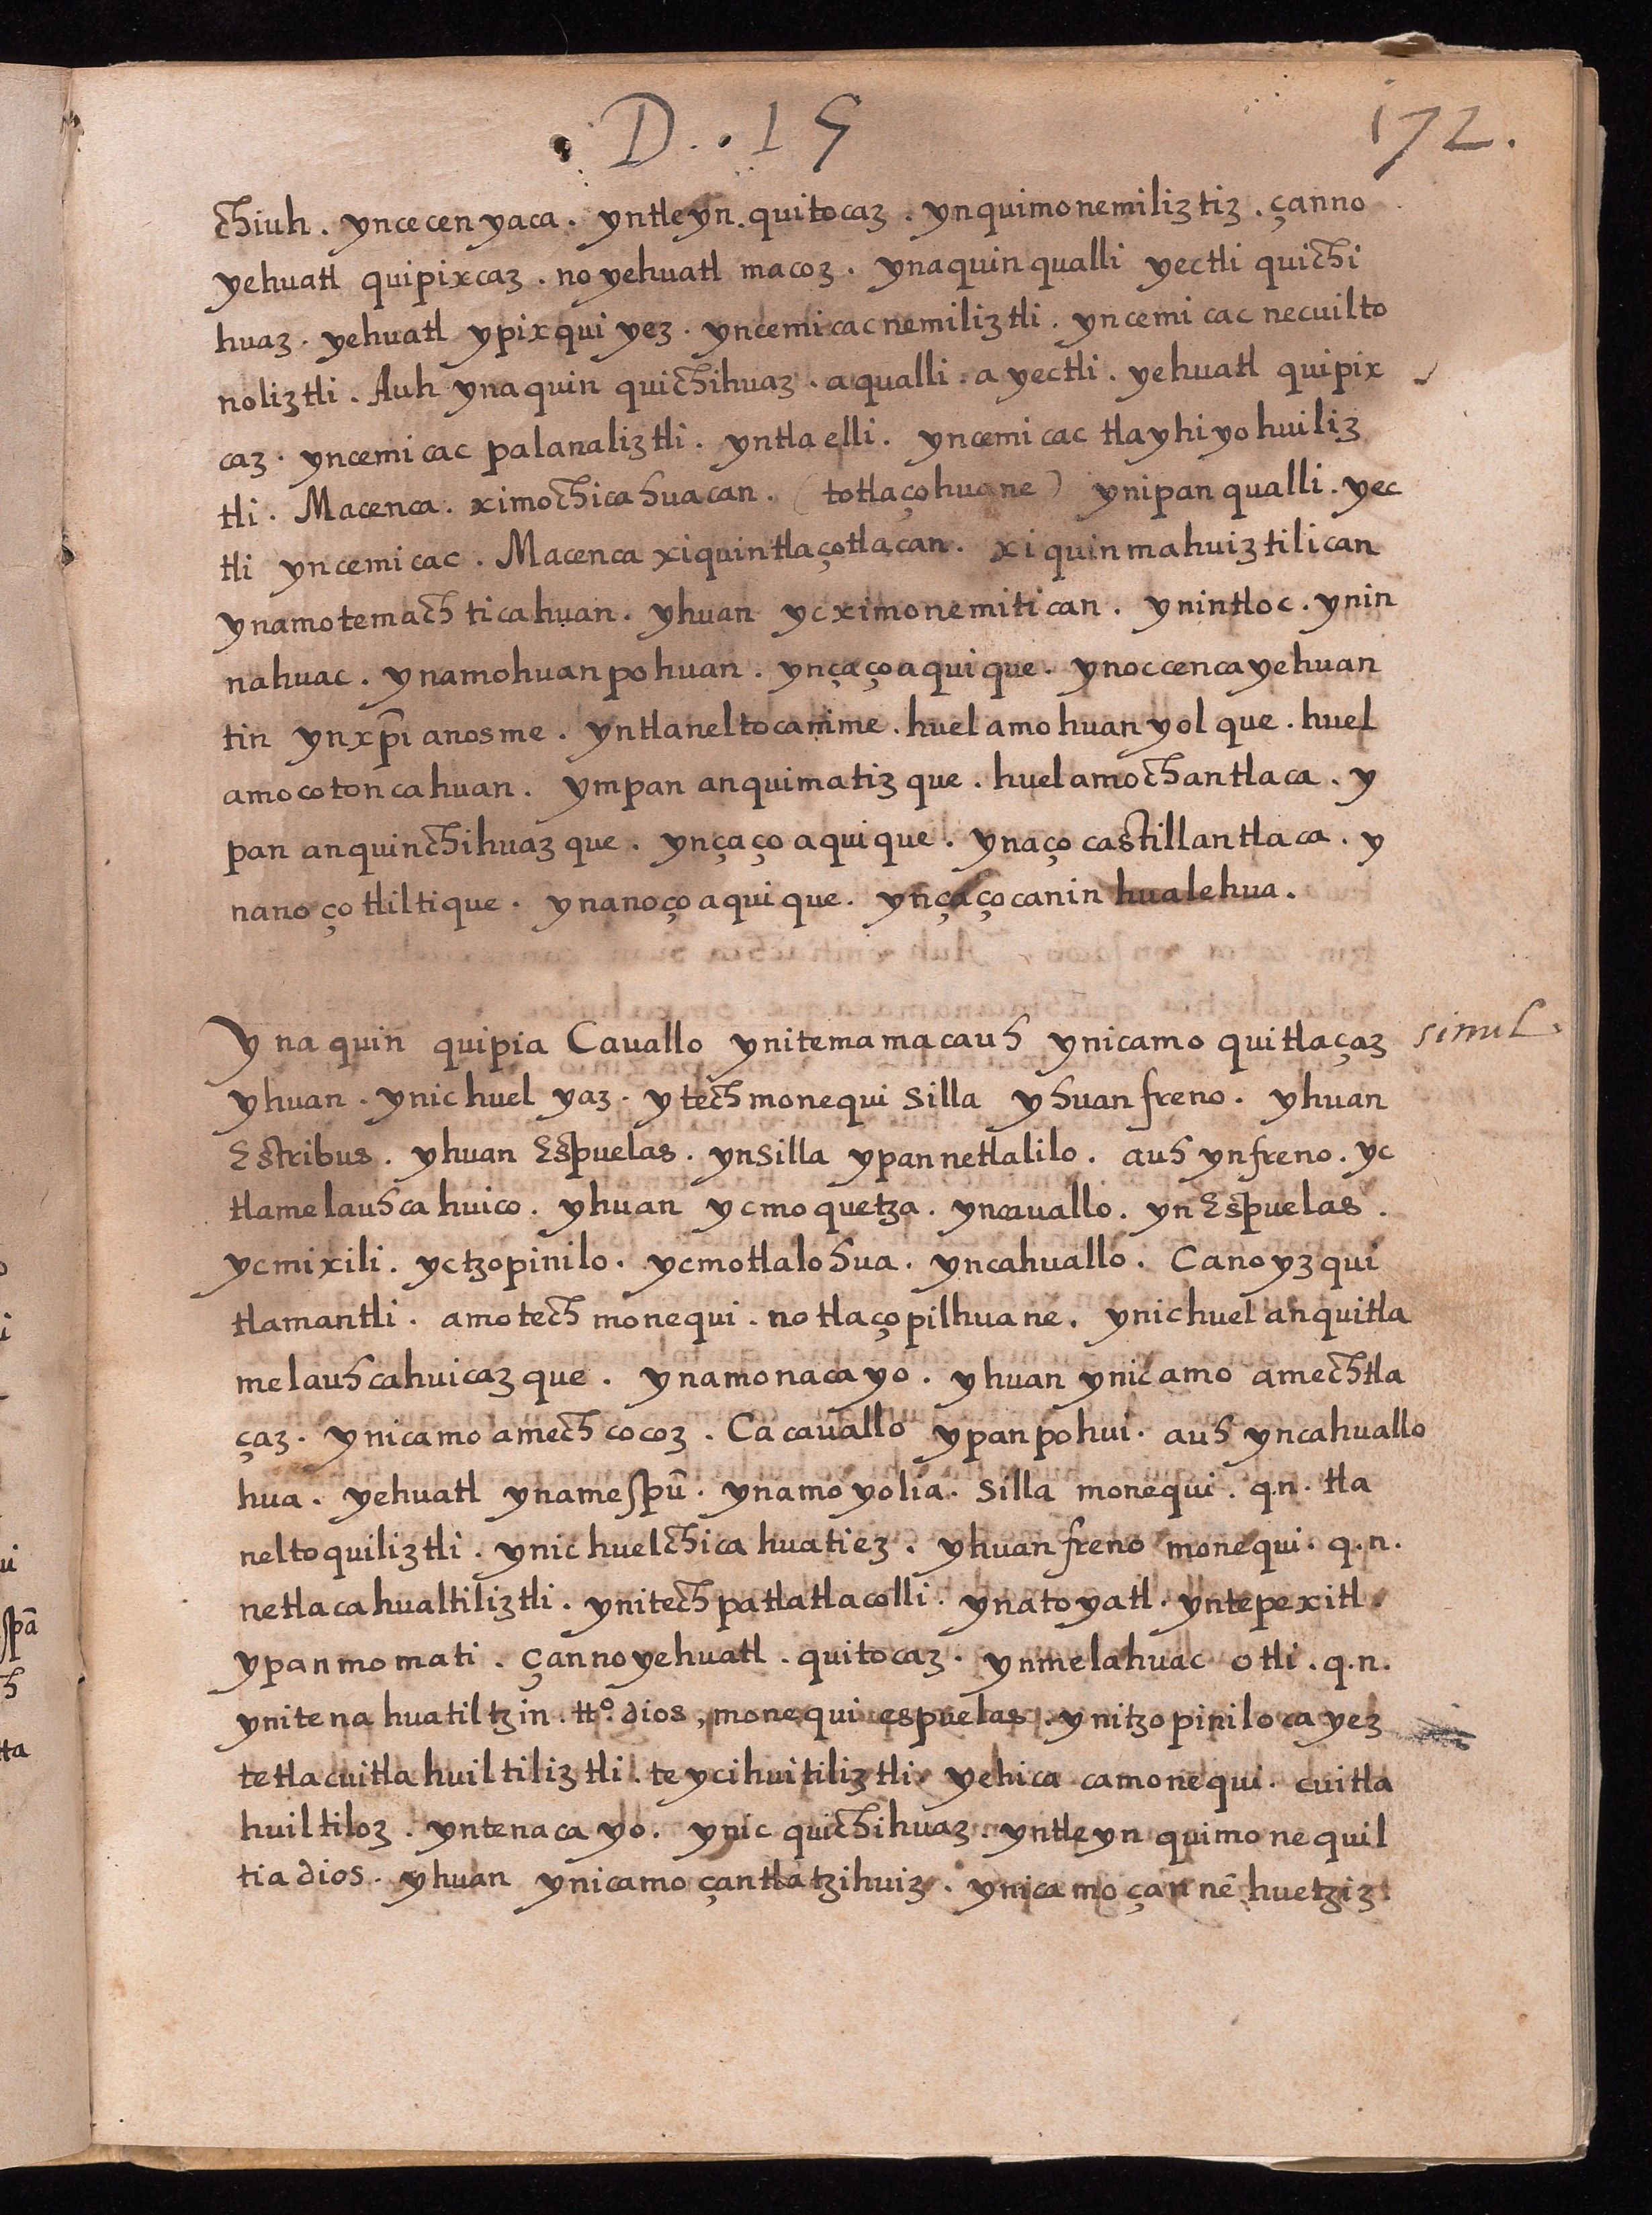 D. . 15 172.
chiuh . yncecen yaca . yntleyn . quitocaz . ynquimonemiliztiz . çanno
yehuatl quipixcaz . no yehuatl macoz . ynaquin qualli yectli quichi
huaz . yehuatl ypixqui yez . yncemicac nemiliztli . yncemi cac necuilto
noliztli . Auh ynaquin quichihuaz . aqualli . a yectli . yehuatl quipix
caz . yncemi cac palanaliztli . yntla elli . yncemi cac tlayhiyohuiliz
tli . Macenca . ximochicahuacan . (totlaçohuane) ynipan qualli . yec
tli yncemicac . Macenca xiquintlaçotlacan . xi quinmahuiztilican
ynamotemachticahuan . yhuan ycximonemitican . ynintloc . ynin
nahuac . ynamohuanpohuan . ynçaçoaquique . ynoccencayehuan
tin ynxp̄ianosme . yntlaneltocanime . huel amo huan yolque . huel
amocotoncahuan . ympan anquimatizque . huelamochantlaca . y
pan anquinchihuazque . ynçaço aquique . ynaço castillantlaca . y
nano ço tliltique . ynanoço aquique . ynçaçocanin hualehua .
Y na quin quipia Cauallo ynitemamacauh ynicamo quitlaçaz simil .
yhuan . ynic huel yaz . ytech monequi silla yhuan freno . yhuan
Estribus . yhuan Espuelas . ynsilla ypannetlalilo . auh ynfreno . yc
tlamelauhcahuico . yhuan ycmoquetza . yncauallo . yn Espuelas .
ycmixili . yctzopinilo . ycmotlalohua . yncahuallo . Canoyzqui
tlamantli . amotech monequi . notlaçopilhuane . ynichuel anquitla
melauhcahuicazque . ynamonacayo . yhuan ynicamo amechtla
çaz . ynicamo amechcocoz . Ca cauallo ypanpohui . auh yncahuallo
hua . yehuatl ynamespū . ynamoyolia . silla monequi . q.n. tla
neltoquiliztli . ynic huelchicahuatiez . yhuan freno monequi . q.n.
netlacahualtiliztli . ynitechpatlatlacolli . ynatoyatl . yntepexitl .
ypanmomati . çannoyehuatl . quitocaz . ynmelahuac otli . q.n.
ynitenahuatiltzin . tto dios , monequi espuelas . ynitzopiniloca yez
tetlacuitlahuiltiliztli . teycihuitiliztli . yehica camonequi . cuitla
huiltiloz . yntenacayo . ynic quichihuaz . yntleyn quimonequil
tia dios . yhuan ynicamo çantlatzihuiz . ynicamo çan nē huetziz .